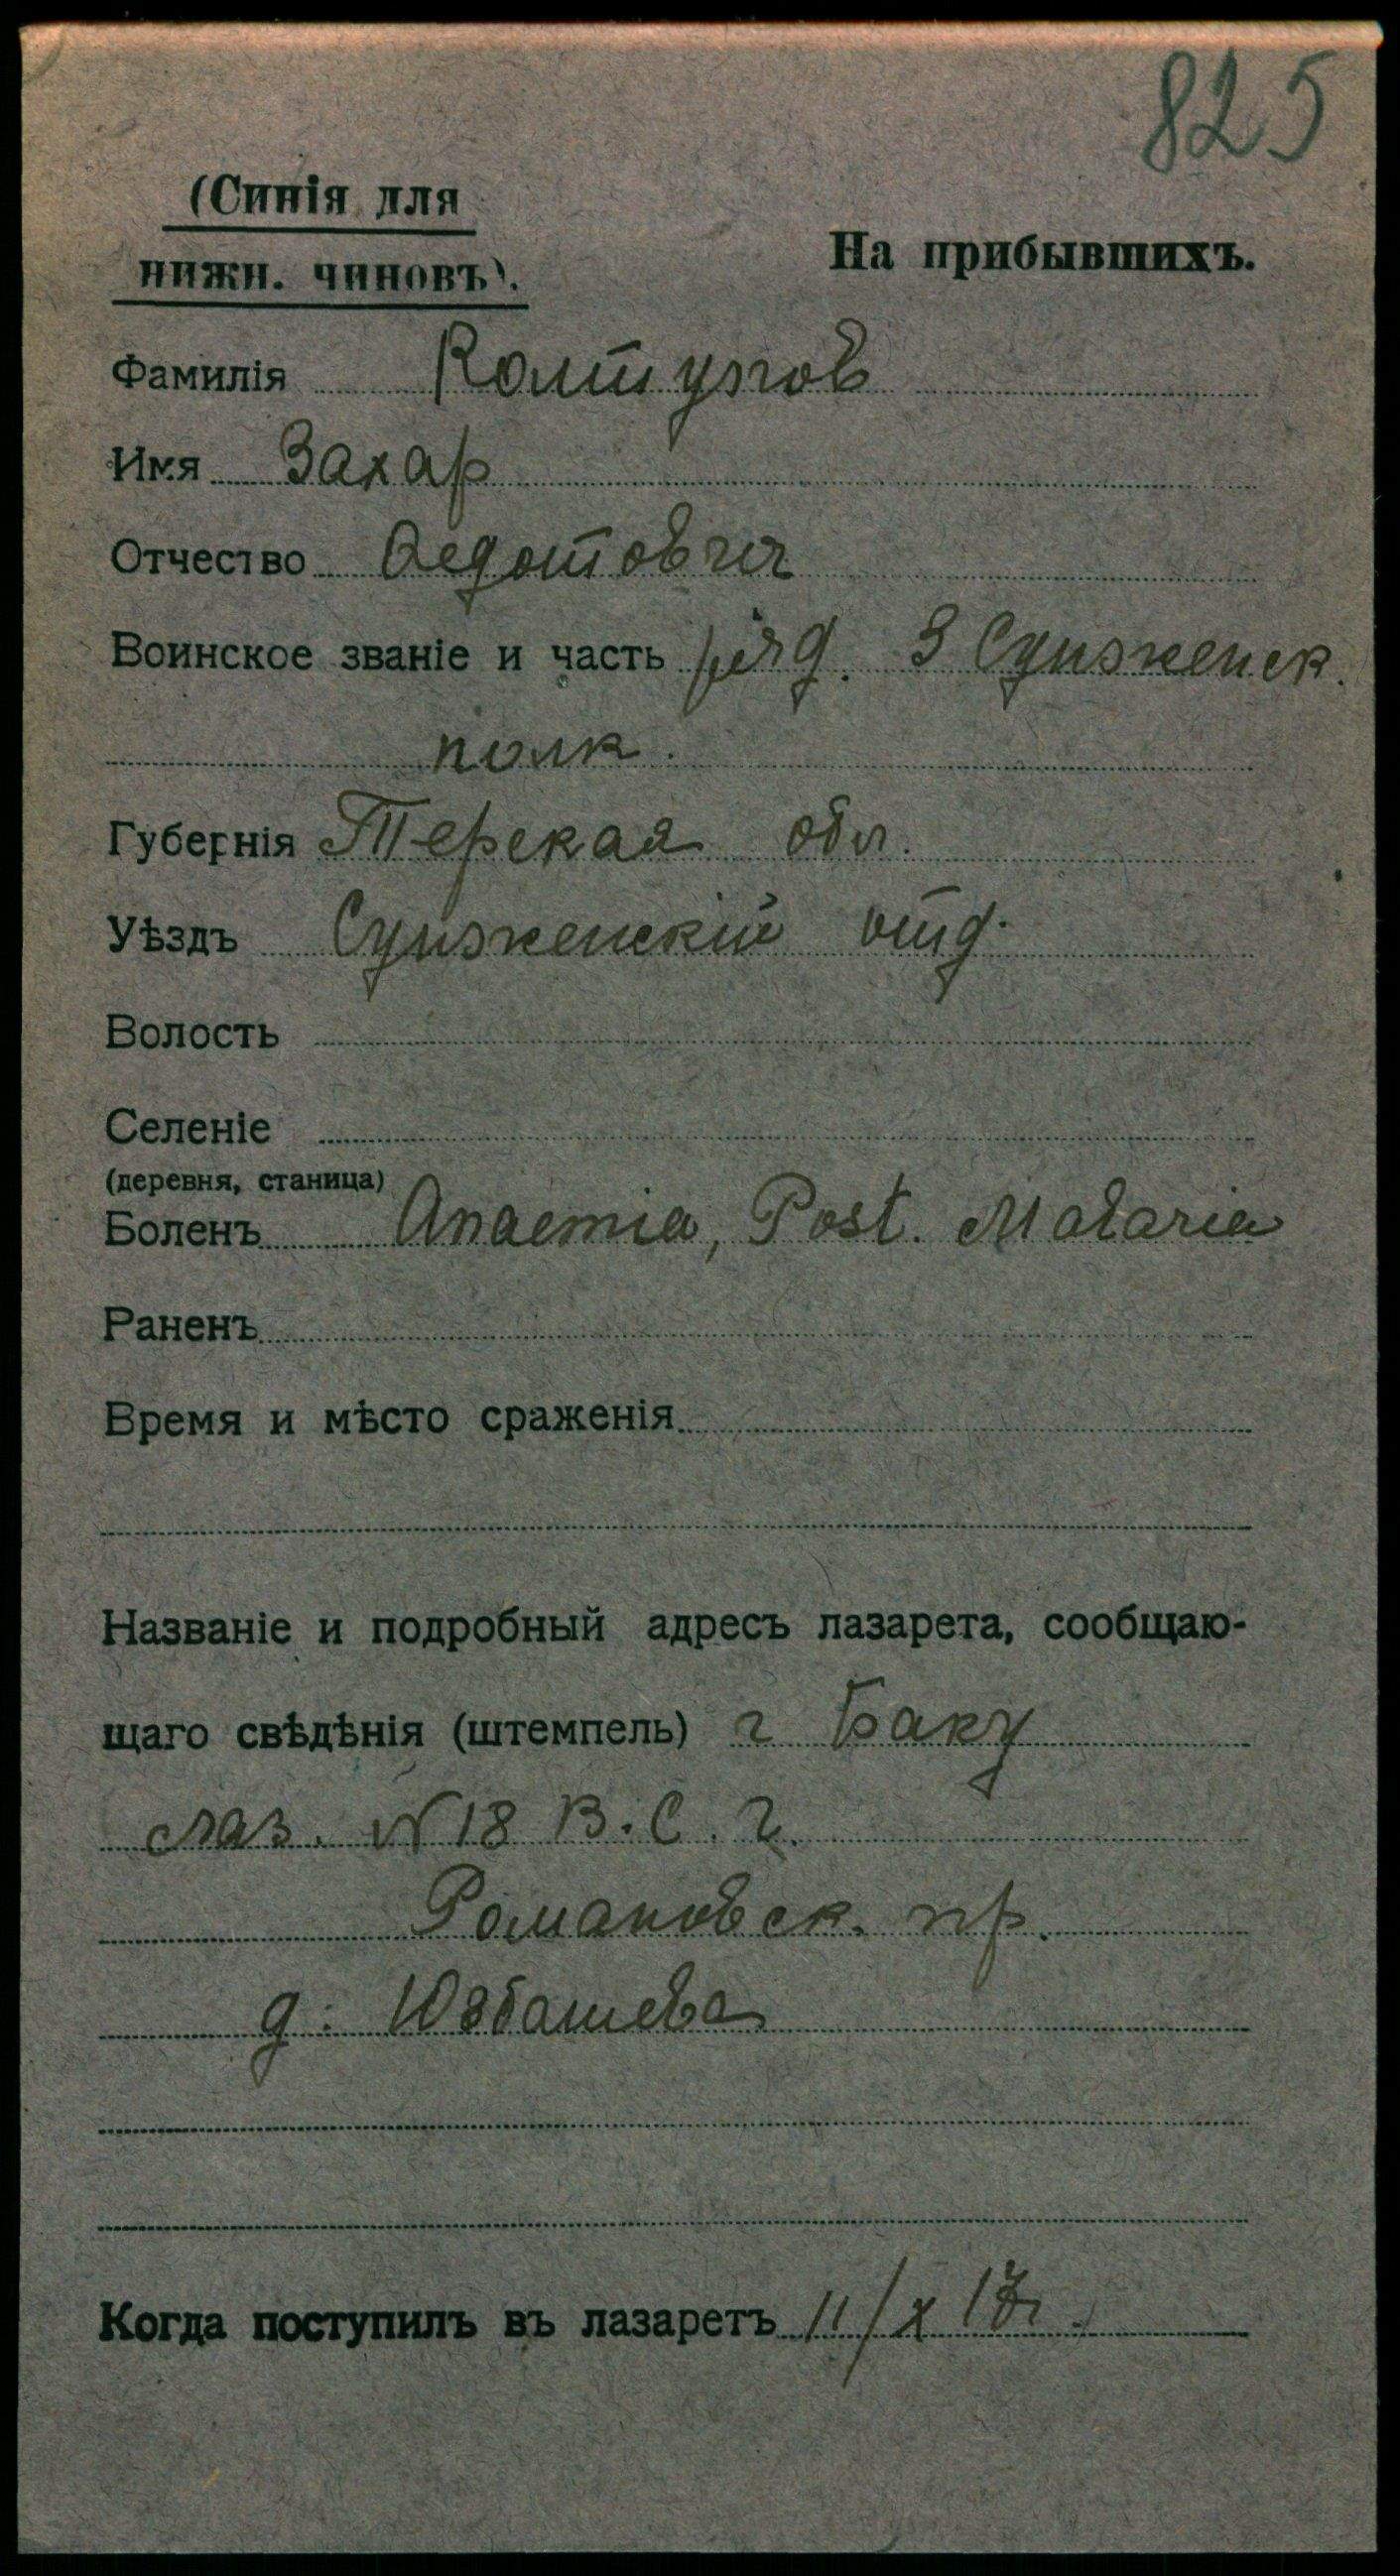 825
(Синія для
нижн. чиновъ).
На прибывшихъ.
Фамилія Колтунов
Имя Захар
Отчество Федотович
Воинское званіе и часть ряд. 3 Сунженск.
полк.
Губернія Терская обл.
Уѣздъ Сунженскій отд.
Волость
Селеніе
(деревня, станица)
Боленъ Anaemia, Post. Malaria
Раненъ
Время и мѣсто сраженія
Названіе и подробный адресъ лазарета, сообщаю-
щаго свѣдѣнія (штемпель) г Баку
лаз. N 18 В. С. Г.
Романовск. пр.
д. Юзбашева
Когда поступилъ въ лазаретъ 11/X 17г.